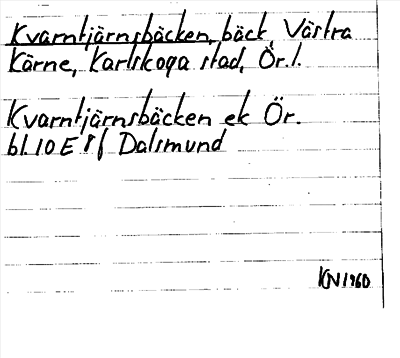 Kvarntjärnsbäcken, bäck, Västra
Kärne, Karlskoga stad, Ör. l.
Kvarntjärnsbäcken ek Ör.
bl. 10E 8f Dalsmund
KN 1960